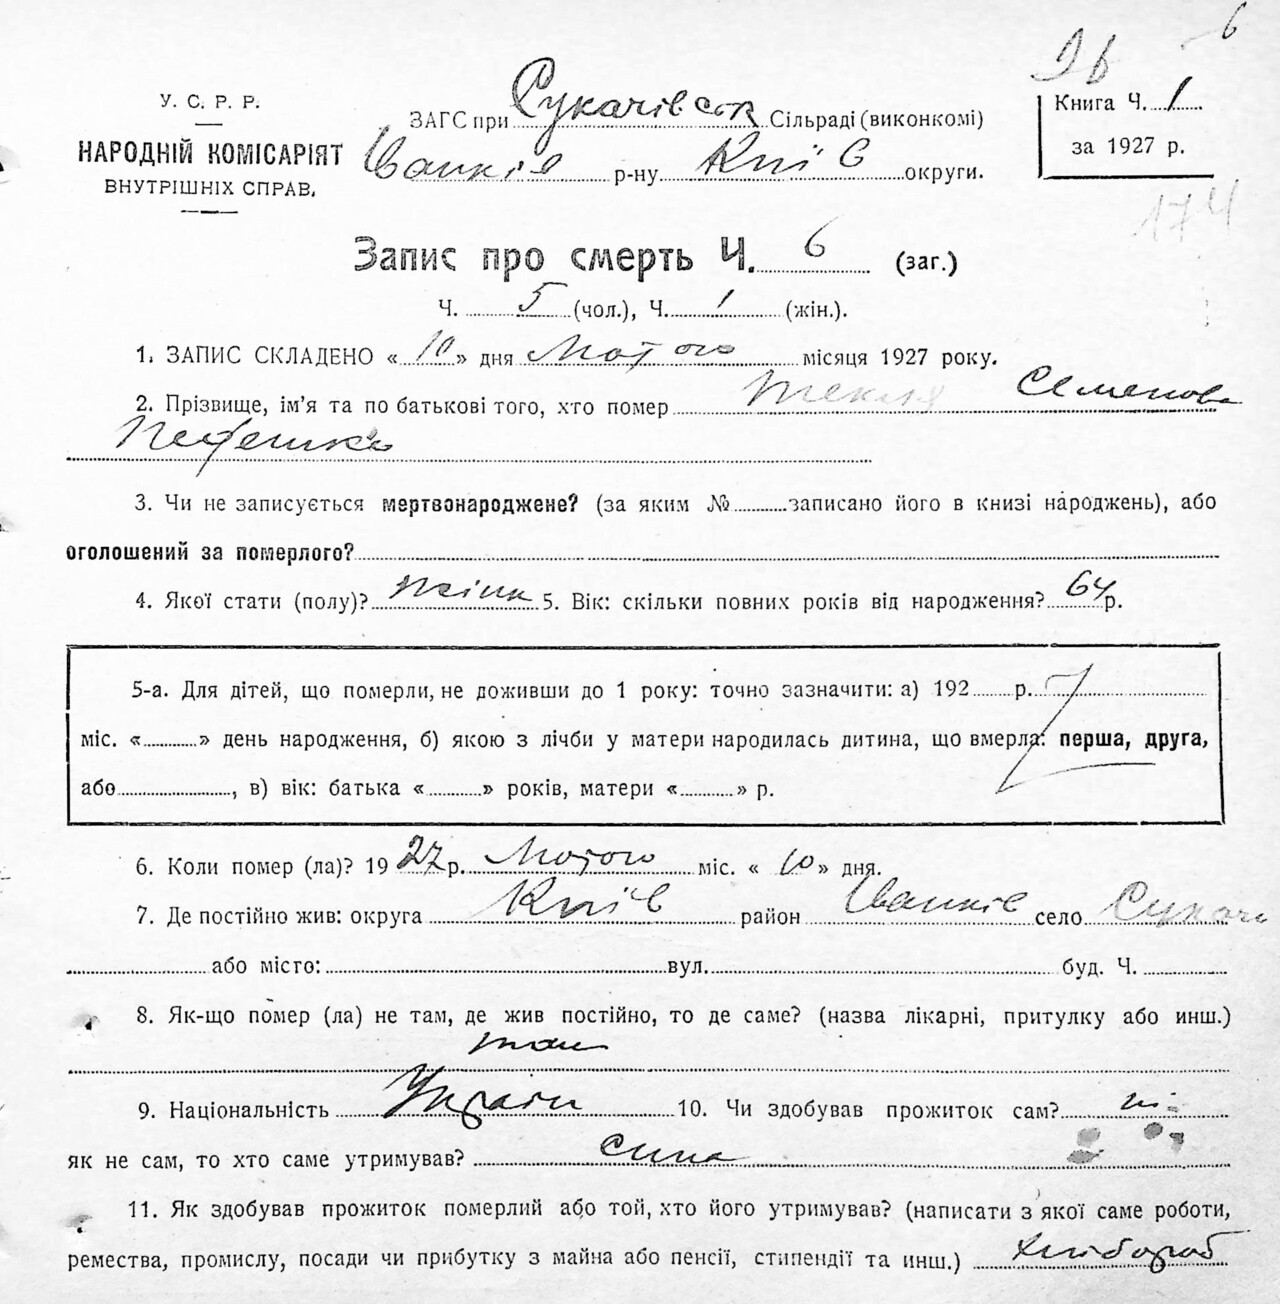 6
У. С. Р. Р.
НАРОДНІЙ КОМІСАРІЯТ
ВНУТРІШНІХ СПРАВ.
ЗАГС при Сукачівськ Сільраді (виконкомі)
Іванків р-ну Київ округи.
Книга Ч. 1
за 1927 р.
174
Запис про смерть Ч. 6 (заг.)
Ч. 5 (чол.), Ч. 1 (жін.).
1. ЗАПИС СКЛАДЕНО « 10 » дня Лютого місяця 1927 року.
2. Прізвище, ім'я та по батькові того, хто помер Текля Семенова
3. Чи не записується мертвонароджене? (за яким № записано його в книзі народжень), або
оголошений за померлого?
4. Якої стати (полу)? жіноч 5. Вік: скільки повних років від народження? 64 р.
5-а. Для дітей, що померли, не доживши до 1 року: точно зазначити: а) 192 р.
міс. « » день народження, б) якою з лічби у матери народилась дитина, що вмерла: перша, друга,
або , в) вік: батька « » років, матери « » р.
6. Коли помер (ла)? 1927 р. Лютого міс. « 10 » дня.
7. Де постійно жив: округа Київ район Іванків село Сукачі
або місто: вул. буд. Ч.
8. Як-що помер (ла) не там, де жив постійно, то де саме? (назва лікарні, притулку або инш.)
там
9. Національність Україн 10. Чи здобував прожиток сам? ні
як не сам, то хто саме утримував? сина
11. Як здобував прожиток померлий або той, хто його утримував? (написати з якої саме роботи,
ремества, промислу, посади чи прибутку з майна або пенсії, стипендії та инш.) хлібороб